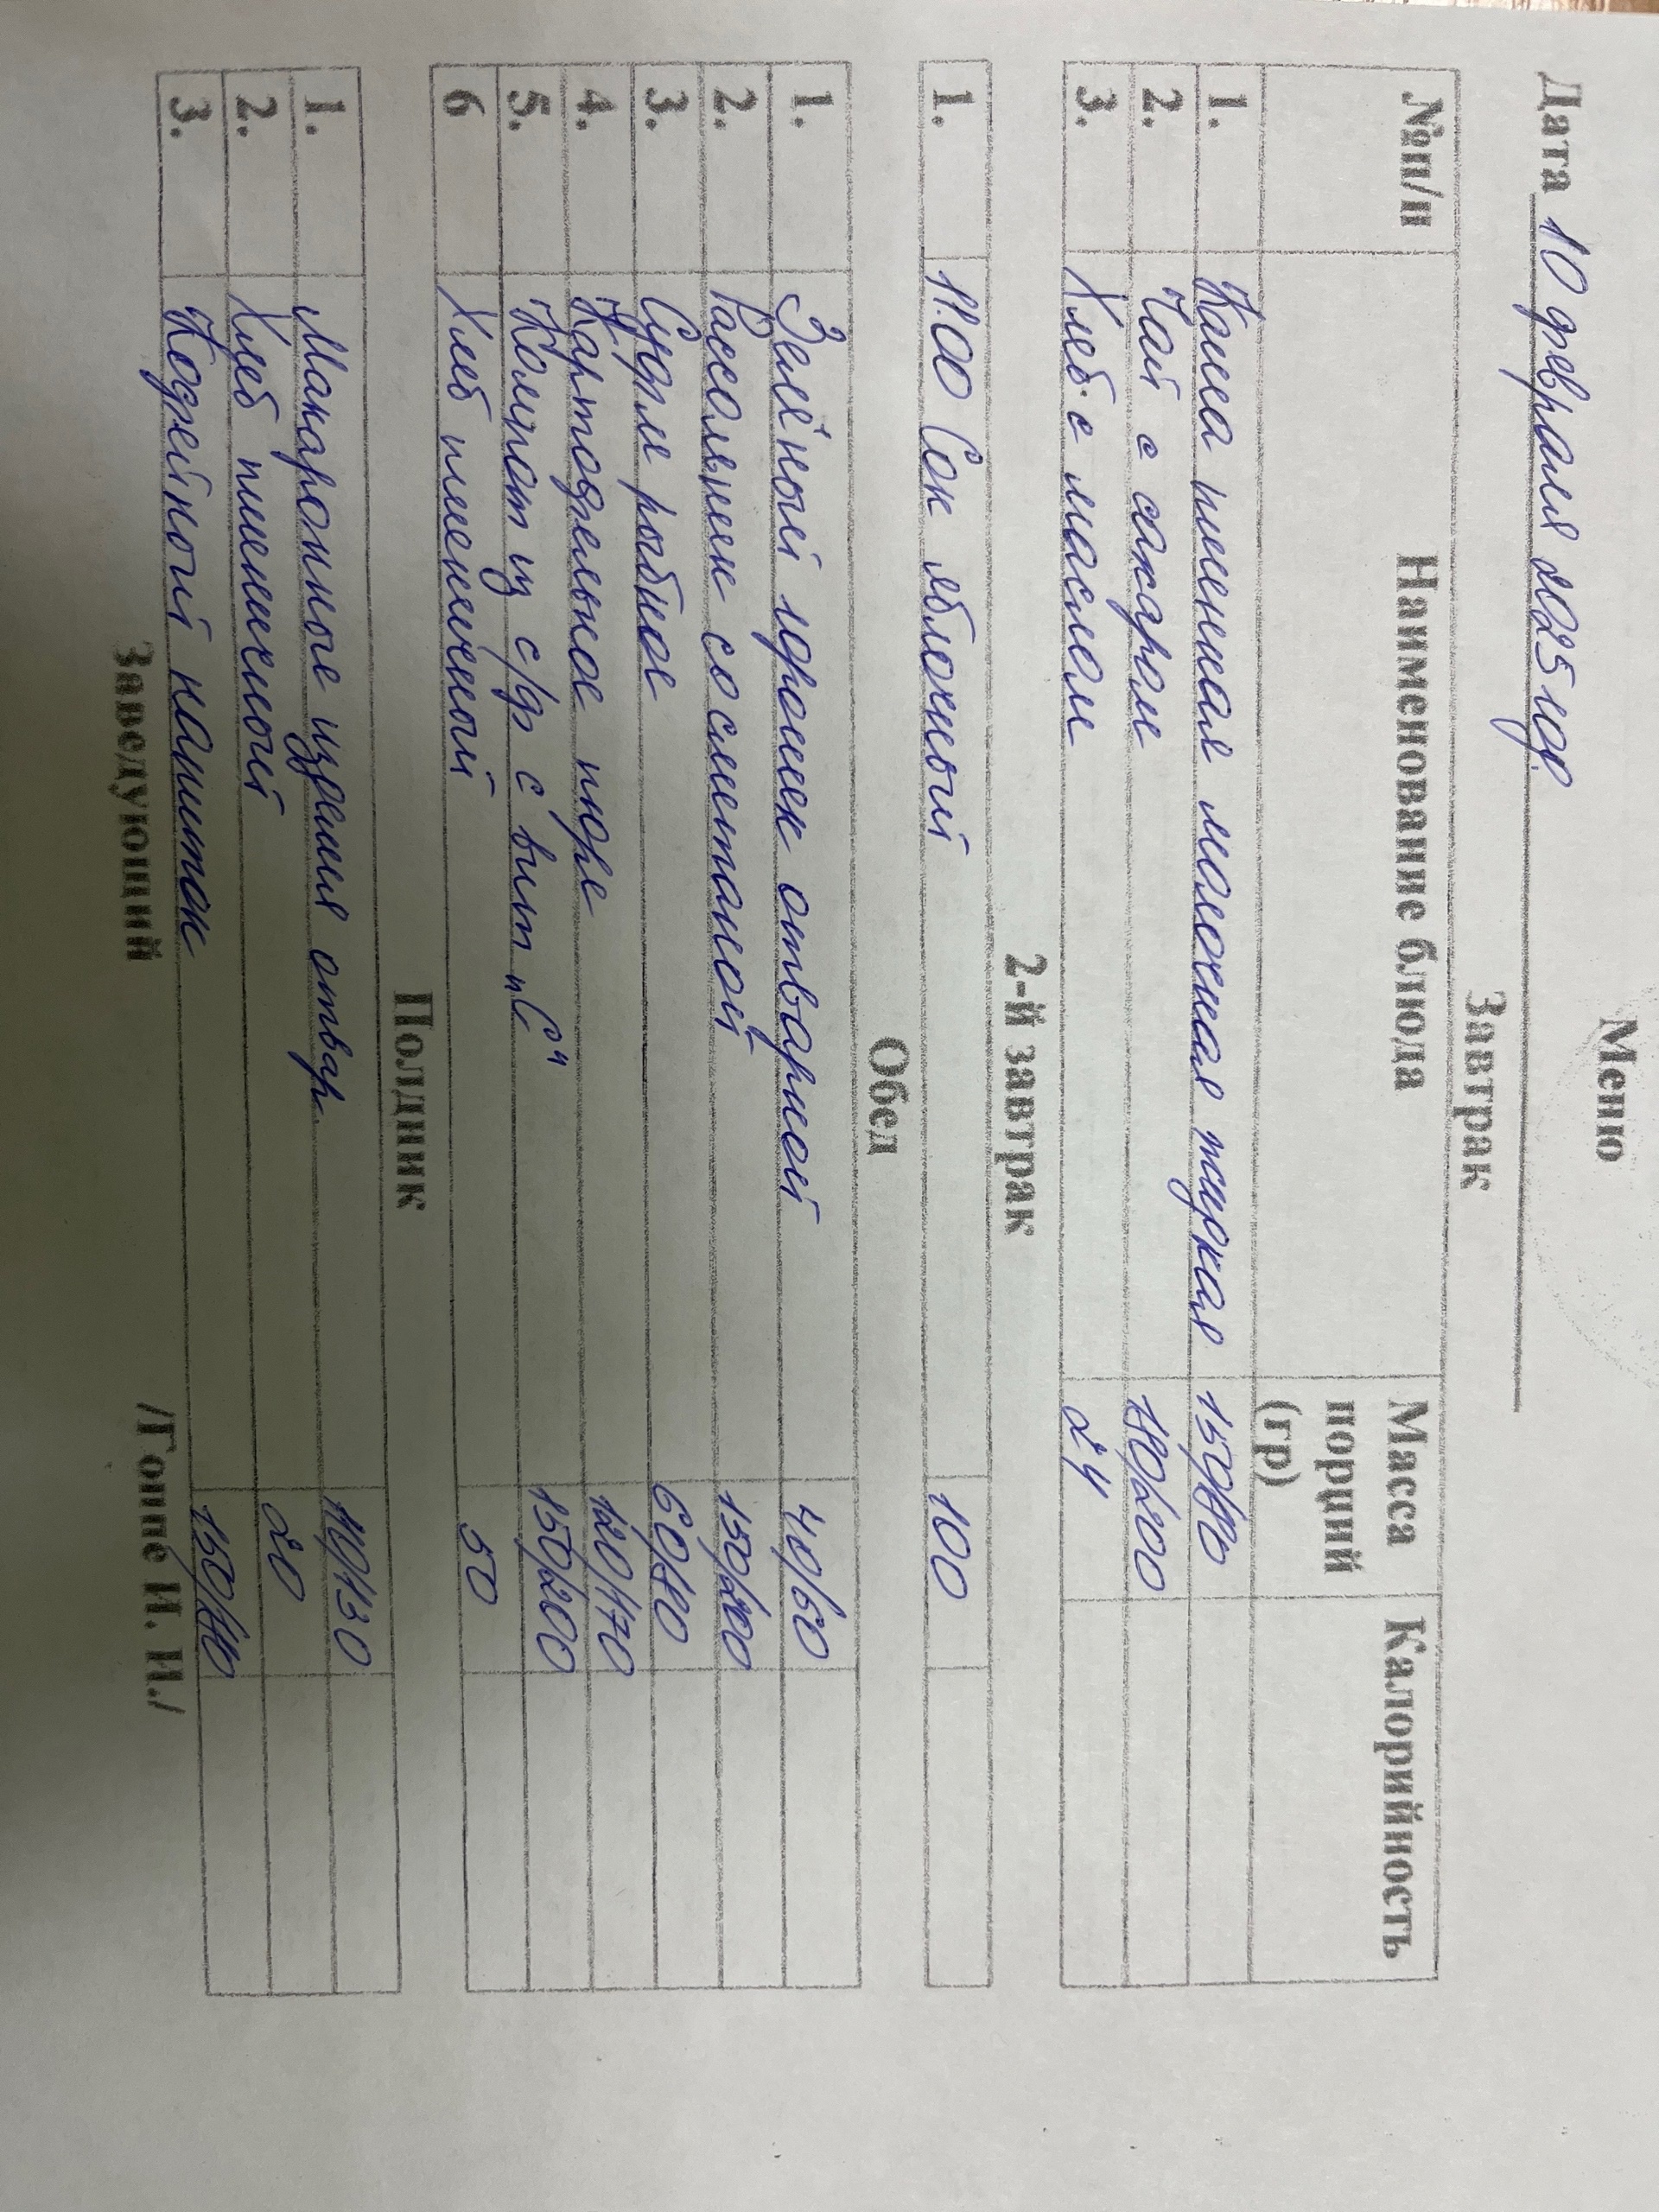 Меню
Дата 10 февраля 2025 год.
Завтрак
№п/п Наименование блюда Масса порций (гр) Калорийность
1. Каша пшенная молочная жидкая 150/180
2. Чай с сахаром 180/200
3. Хлеб с маслом 24
2-й завтрак
1. 11.00 Сок яблочный 100
Обед
1. Зелёный горошек отварной 40/60
2. Рассольник со сметаной 150/200
3. Суфле рыбное 60/80
4. Картофельное пюре 120/170
5. Компот из с/ф с вит "С" 150/200
6 Хлеб пшеничный 50
Полдник
1. Макаронные изделия отвар. 110/130
2. Хлеб пшеничный 20
3. Кофейный напиток 150/180
Заведующий /Гоппе И. И./